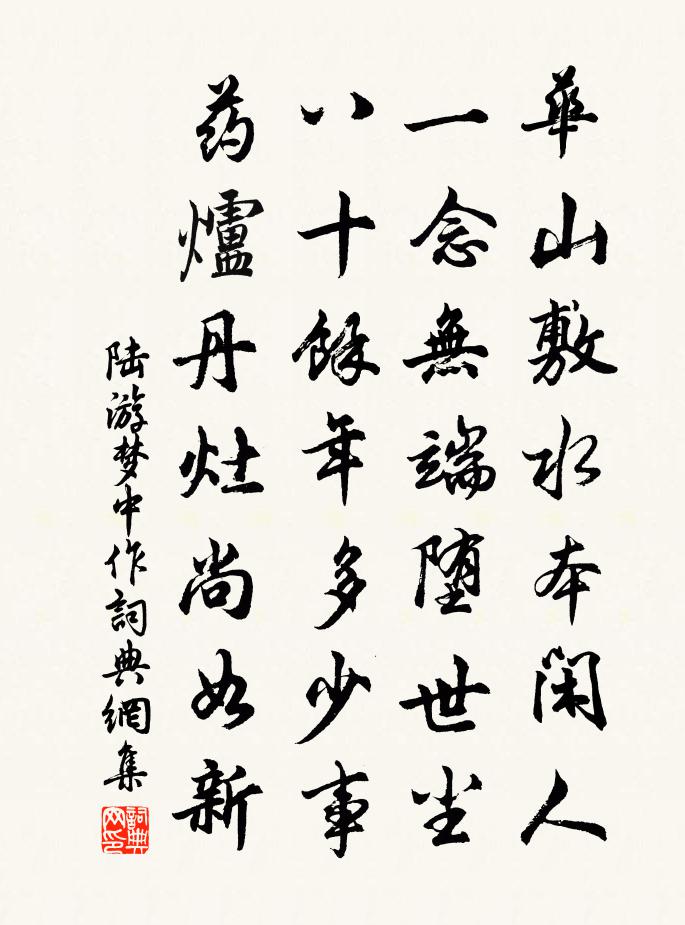 華山敷水本閑人
一念無端堕世尘
八十餘年多少事
药爐丹灶尚如新
陆游梦中作詞典網集
詞典网印